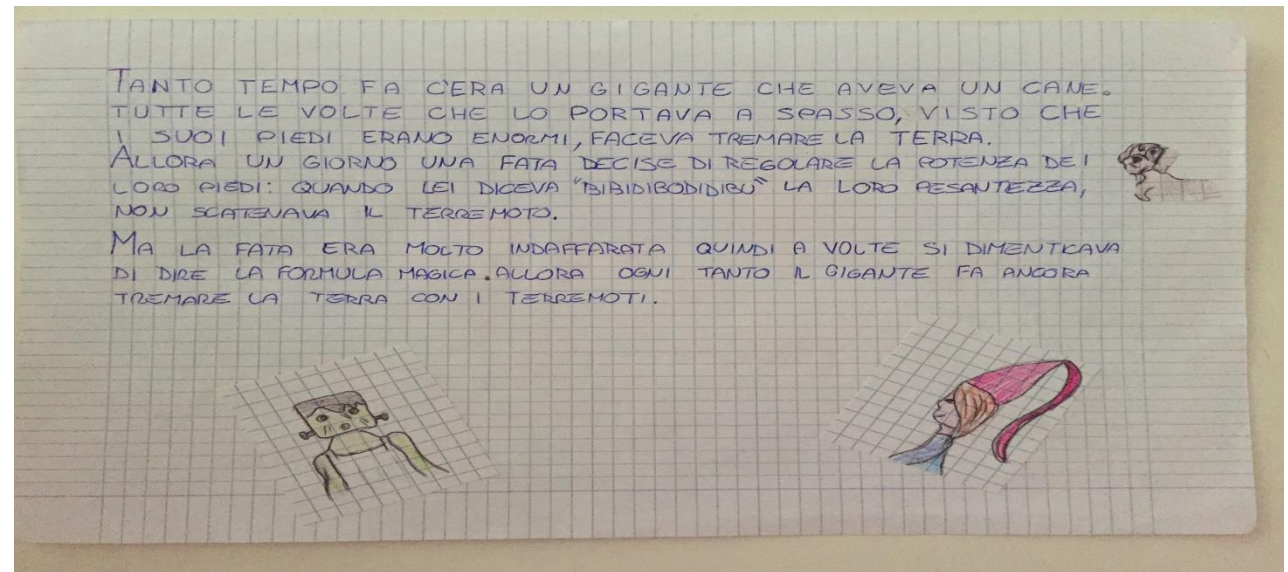 TANTO TEMPO FA C'ERA UN GIGANTE CHE AVEVA UN CANE.
TUTTE LE VOLTE CHE LO PORTAVA A SPASSO, VISTO CHE
I SUOI PIEDI ERANO ENORMI, FACEVA TREMARE LA TERRA.
ALLORA UN GIORNO UNA FATA DECISE DI REGOLARE LA POTENZA DEI
LORO PIEDI: QUANDO LEI DICEVA "BIBIDIBODIDIBU" LA LORO PESANTEZZA,
NON SCATENAVA IL TERREMOTO.
MA LA FATA ERA MOLTO INDAFFARATA QUINDI A VOLTE SI DIMENTICAVA
DI DIRE LA FORMULA MAGICA. ALLORA OGNI TANTO IL GIGANTE FA ANCORA
TREMARE LA TERRA CON I TERREMOTI.